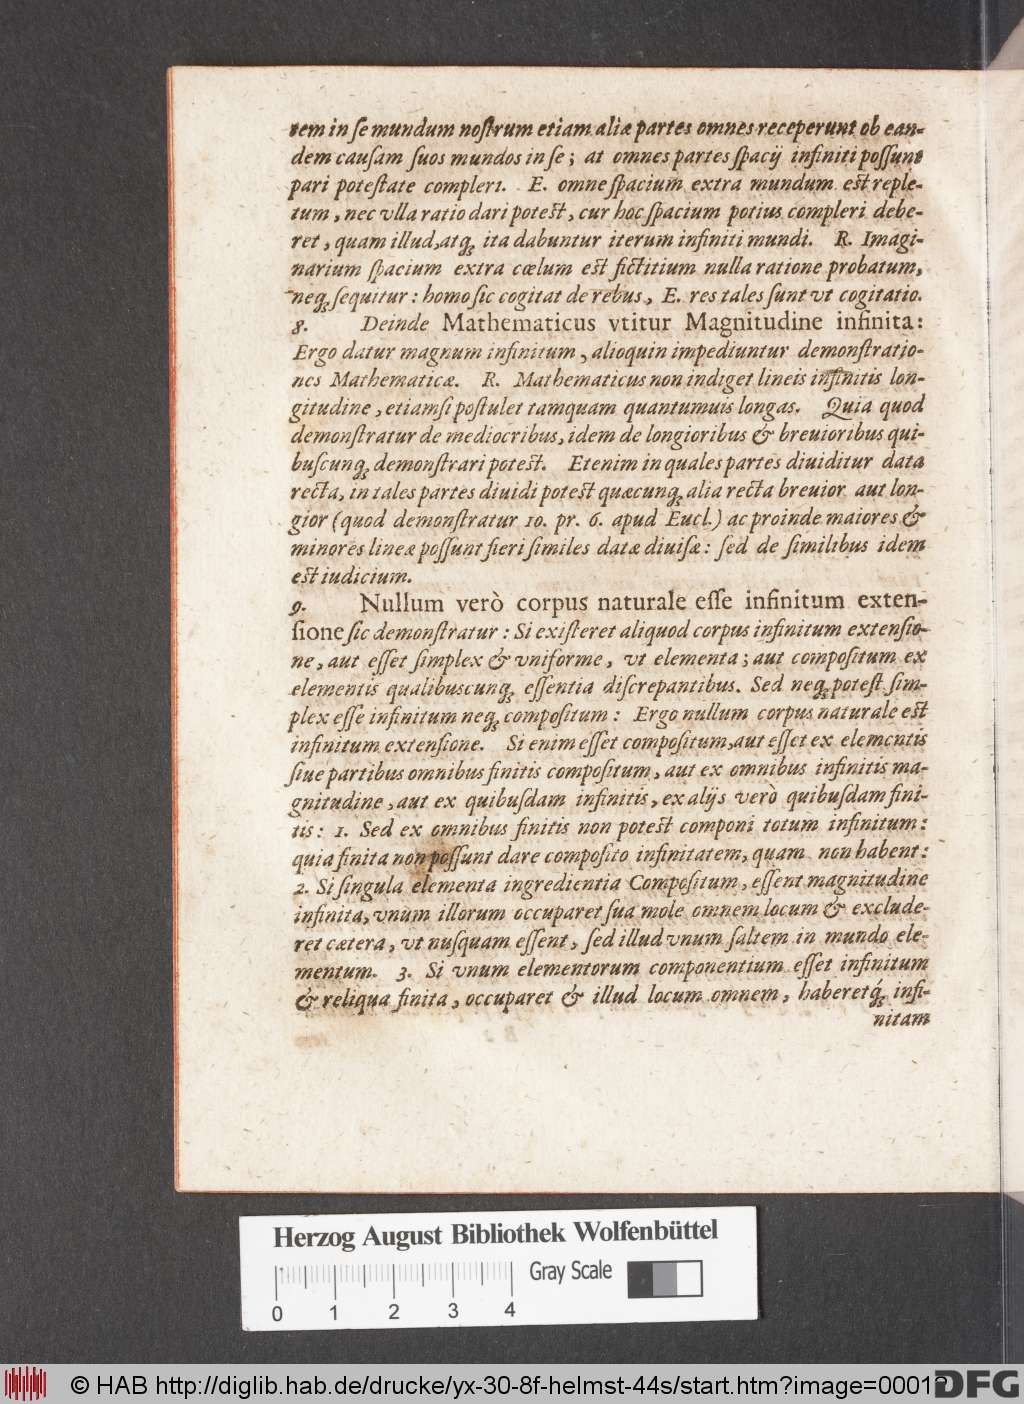 tem in ſe mundum noſtrum etiam aliæ partes omnes receperunt ob ean-
dem cauſam ſuos mundos in ſe; at omnes partes ſpacij infiniti poſſunt
pari poteſtate compleri. E. omne ſpacium extra mundum eſt reple-
tum, nec vlla ratio dari poteſt, cur hoc ſpacium potius compleri debe-
ret, quam illud, atq; ita dabuntur iterum infiniti mundi. R. Imagi-
narium ſpacium extra cœlum eſt fictitium nulla ratione probatum,
neq; ſequitur: homo ſic cogitat de rebus, E. res tales ſunt vt cogitatio.
8. Deinde Mathematicus vtitur Magnitudine infinita:
Ergo datur magnum infinitum, alioquin impediuntur demonſtratio-
nes Mathematicæ. R. Mathematicus non indiget lineis infinitis lon-
gitudine, etiamſi poſtulet tamquam quantumuis longas. Quia quod
demonſtratur de mediocribus, idem de longioribus & breuioribus qui-
buſcunq; demonſtrari poteſt. Etenim in quales partes diuiditur data
recta, in tales partes diuidi poteſt quæcunq; alia recta breuior aut lon-
gior (quod demonſtratur 10. pr. 6. apud Eucl.) ac proinde maiores &
minores lineæ poſſunt fieri ſimiles datæ diuiſæ: ſed de ſimilibus idem
eſt iudicium.
9. Nullum verò corpus naturale eſſe infinitum exten-
ſione ſic demonſtratur: Si exiſteret aliquod corpus infinitum extenſio-
ne, aut eſſet ſimplex & vniforme, vt elementa; aut compoſitum ex
elementis qualibuscunq; eſſentia diſcrepantibus. Sed neq; poteſt ſim-
plex eſſe infinitum neq; compoſitum: Ergo nullum corpus naturale eſt
infinitum extenſione. Si enim eſſet compoſitum, aut eſſet ex elementis
ſiue partibus omnibus finitis compoſitum, aut ex omnibus infinitis ma-
gnitudine, aut ex quibuſdam infinitis, ex alijs verò quibuſdam fini-
tis: 1. Sed ex omnibus finitis non poteſt componi totum infinitum:
quia finita non poſſunt dare compoſito infinitatem, quam non habent:
2. Si ſingula elementa ingredientia Compoſitum, eſſent magnitudine
infinita, vnum illorum occuparet ſua mole omnem locum & exclude-
ret cætera, vt nuſquam eſſent, ſed illud vnum ſaltem in mundo ele-
mentum. 3. Si vnum elementorum componentium eſſet infinitum
& reliqua finita, occuparet & illud locum omnem, haberetq́; infi-
nitam
Herzog August Bibliothek Wolfenbüttel
Gray Scale
0 1 2 3 4
© HAB http://diglib.hab.de/drucke/yx-30-8f-helmst-44s/start.htm?image=00012
DFG